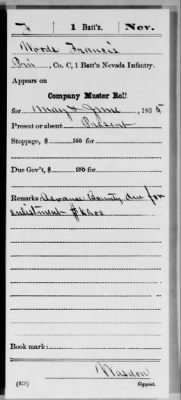 1 Batt'z. Nev.
Woods Francis
Pvt., Co. C, 1 Batt'n Nevada Infantry.
Appears on
Company Muster Roll
for May & June, 1865
Present or absent Present
Stoppage, $ 100 for
Due Gov't, $ 100 for
Remarks: Advance Bounty due for
enlistment $
Book mark:
(858) Copyist.